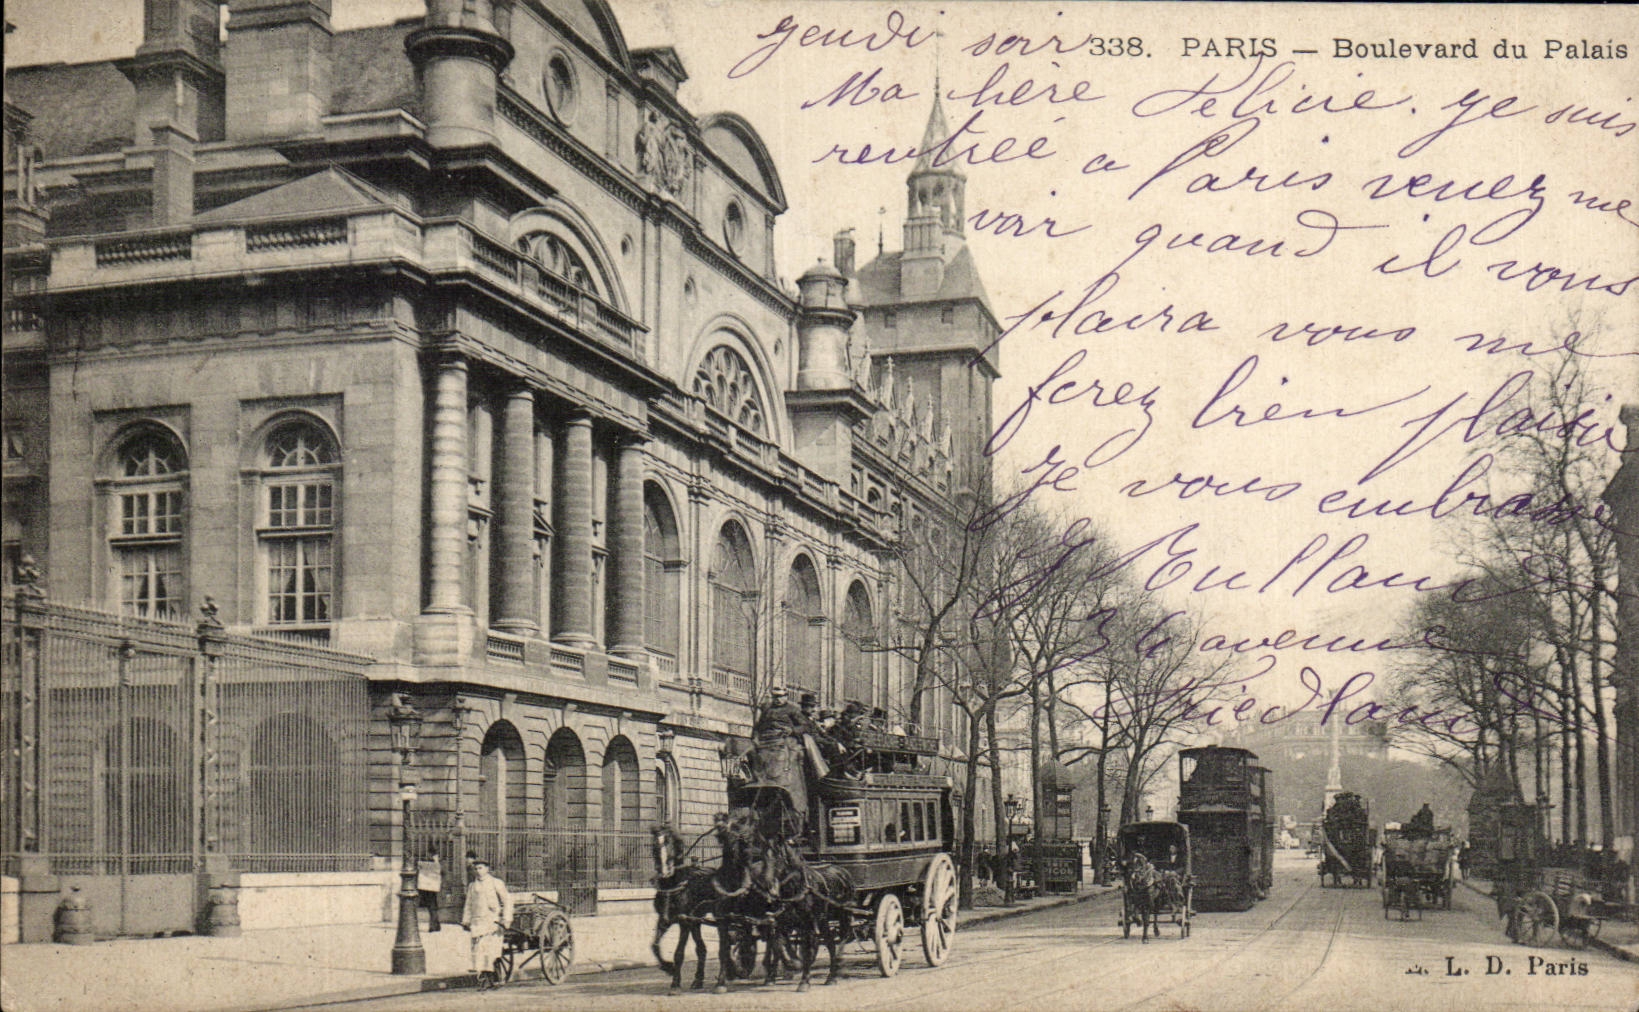 338. PARIS — Boulevard du Palais
jeudi soir
Ma hère Felicie. je suis
rentrée a Paris venez me
voir quand il vous
plaira vous me
ferez bien plaisir
Je vous embrasse
34 avenue
Friedland
L. D. Paris